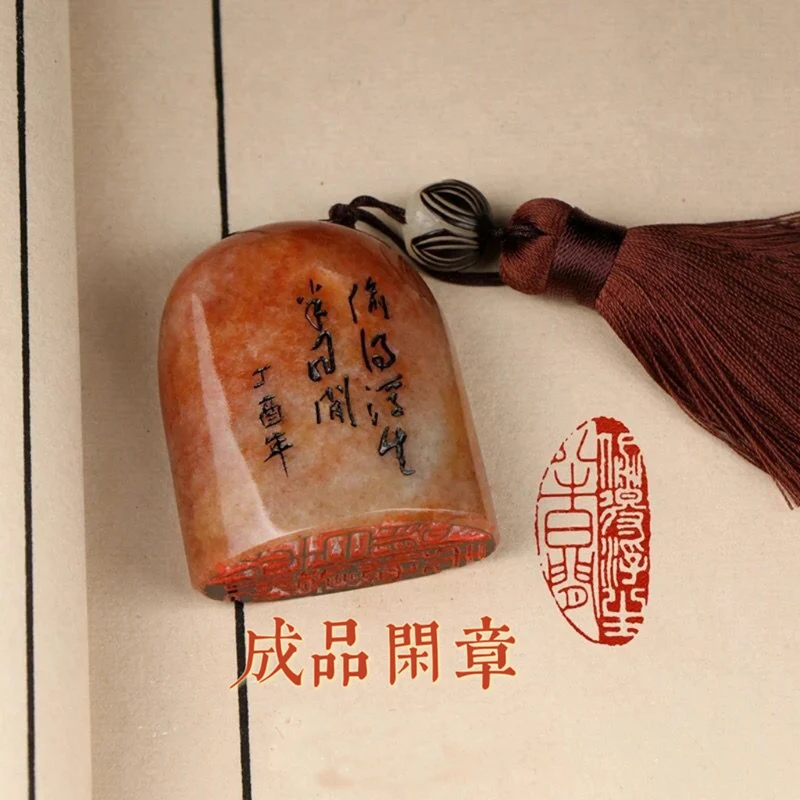 偷得浮生
半日閒
丁酉年
偷得浮生
半日閒
成品閑章